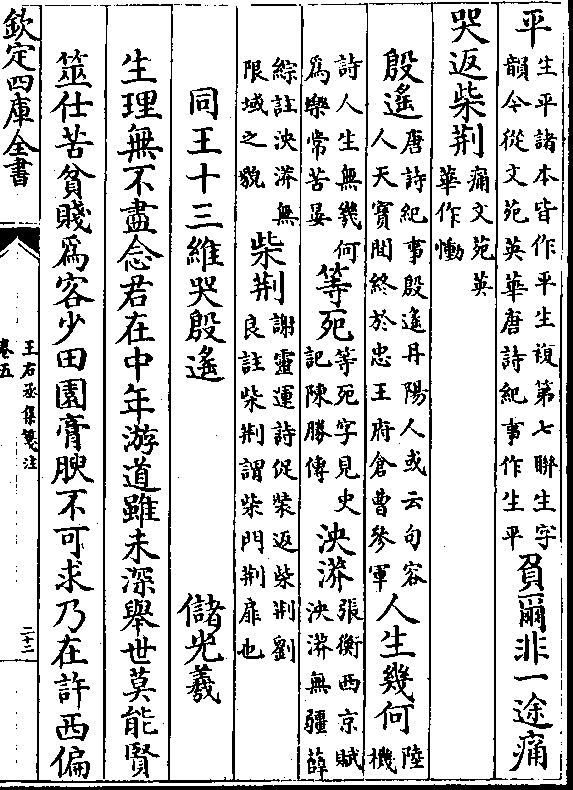 平生平諸本皆作平生複第七聯生字韻今從文苑英華唐詩紀事作生平負爾非一途痛
哭返柴荆痛文苑英華作慟
殷遙唐詩紀事殷遙丹陽人或云句容人天寶間終於忠王府倉曹參軍人生幾何陸機
詩人生無幾何爲樂常苦晏等死等死字見史記陳勝傳泱漭張衡西京賦泱漭無疆薛
綜註泱漭無限域之貌柴荆謝靈運詩促裝返柴荆劉良註柴荆謂柴門荆扉也
同王十三維哭殷遙 儲光羲
生理無不盡念君在中年游道雖未深舉世莫能賢
筮仕苦貧賤爲客少田園膏腴不可求乃在許西偏
欽定四庫全書
王右丞集箋注
卷五
二十二